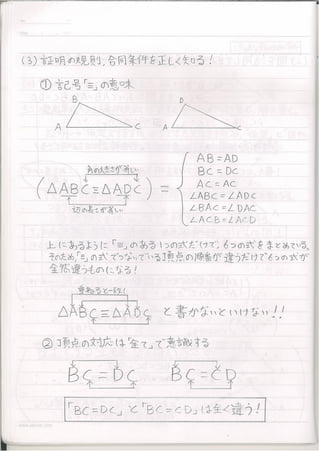 (3) 証明の規則,合同条件を正しく知る!
① 記号「≡」の意味
B
A C
D
A C
角の大きさが等しい
(△ABC≡△ADC) =
辺の長さが等しい
AB=AD
BC=DC
AC=AC
∠ABC=∠ADC
∠BAC=∠DAC
∠ACB=∠ACD
上にあるように「≡」のある1つの式だけで、6つの式をまとめている。
そのため「≡」の式でつないでいる頂点の順番が違うだけで6つの式が
全然違うものになる!
重ねると一致!
△ABC≡△ADC と書かないといけない!!
② 頂点の対応は「全て」で意識する
BC=DC BC=CD
「BC=DC」と「BC=CD」は全く違う!